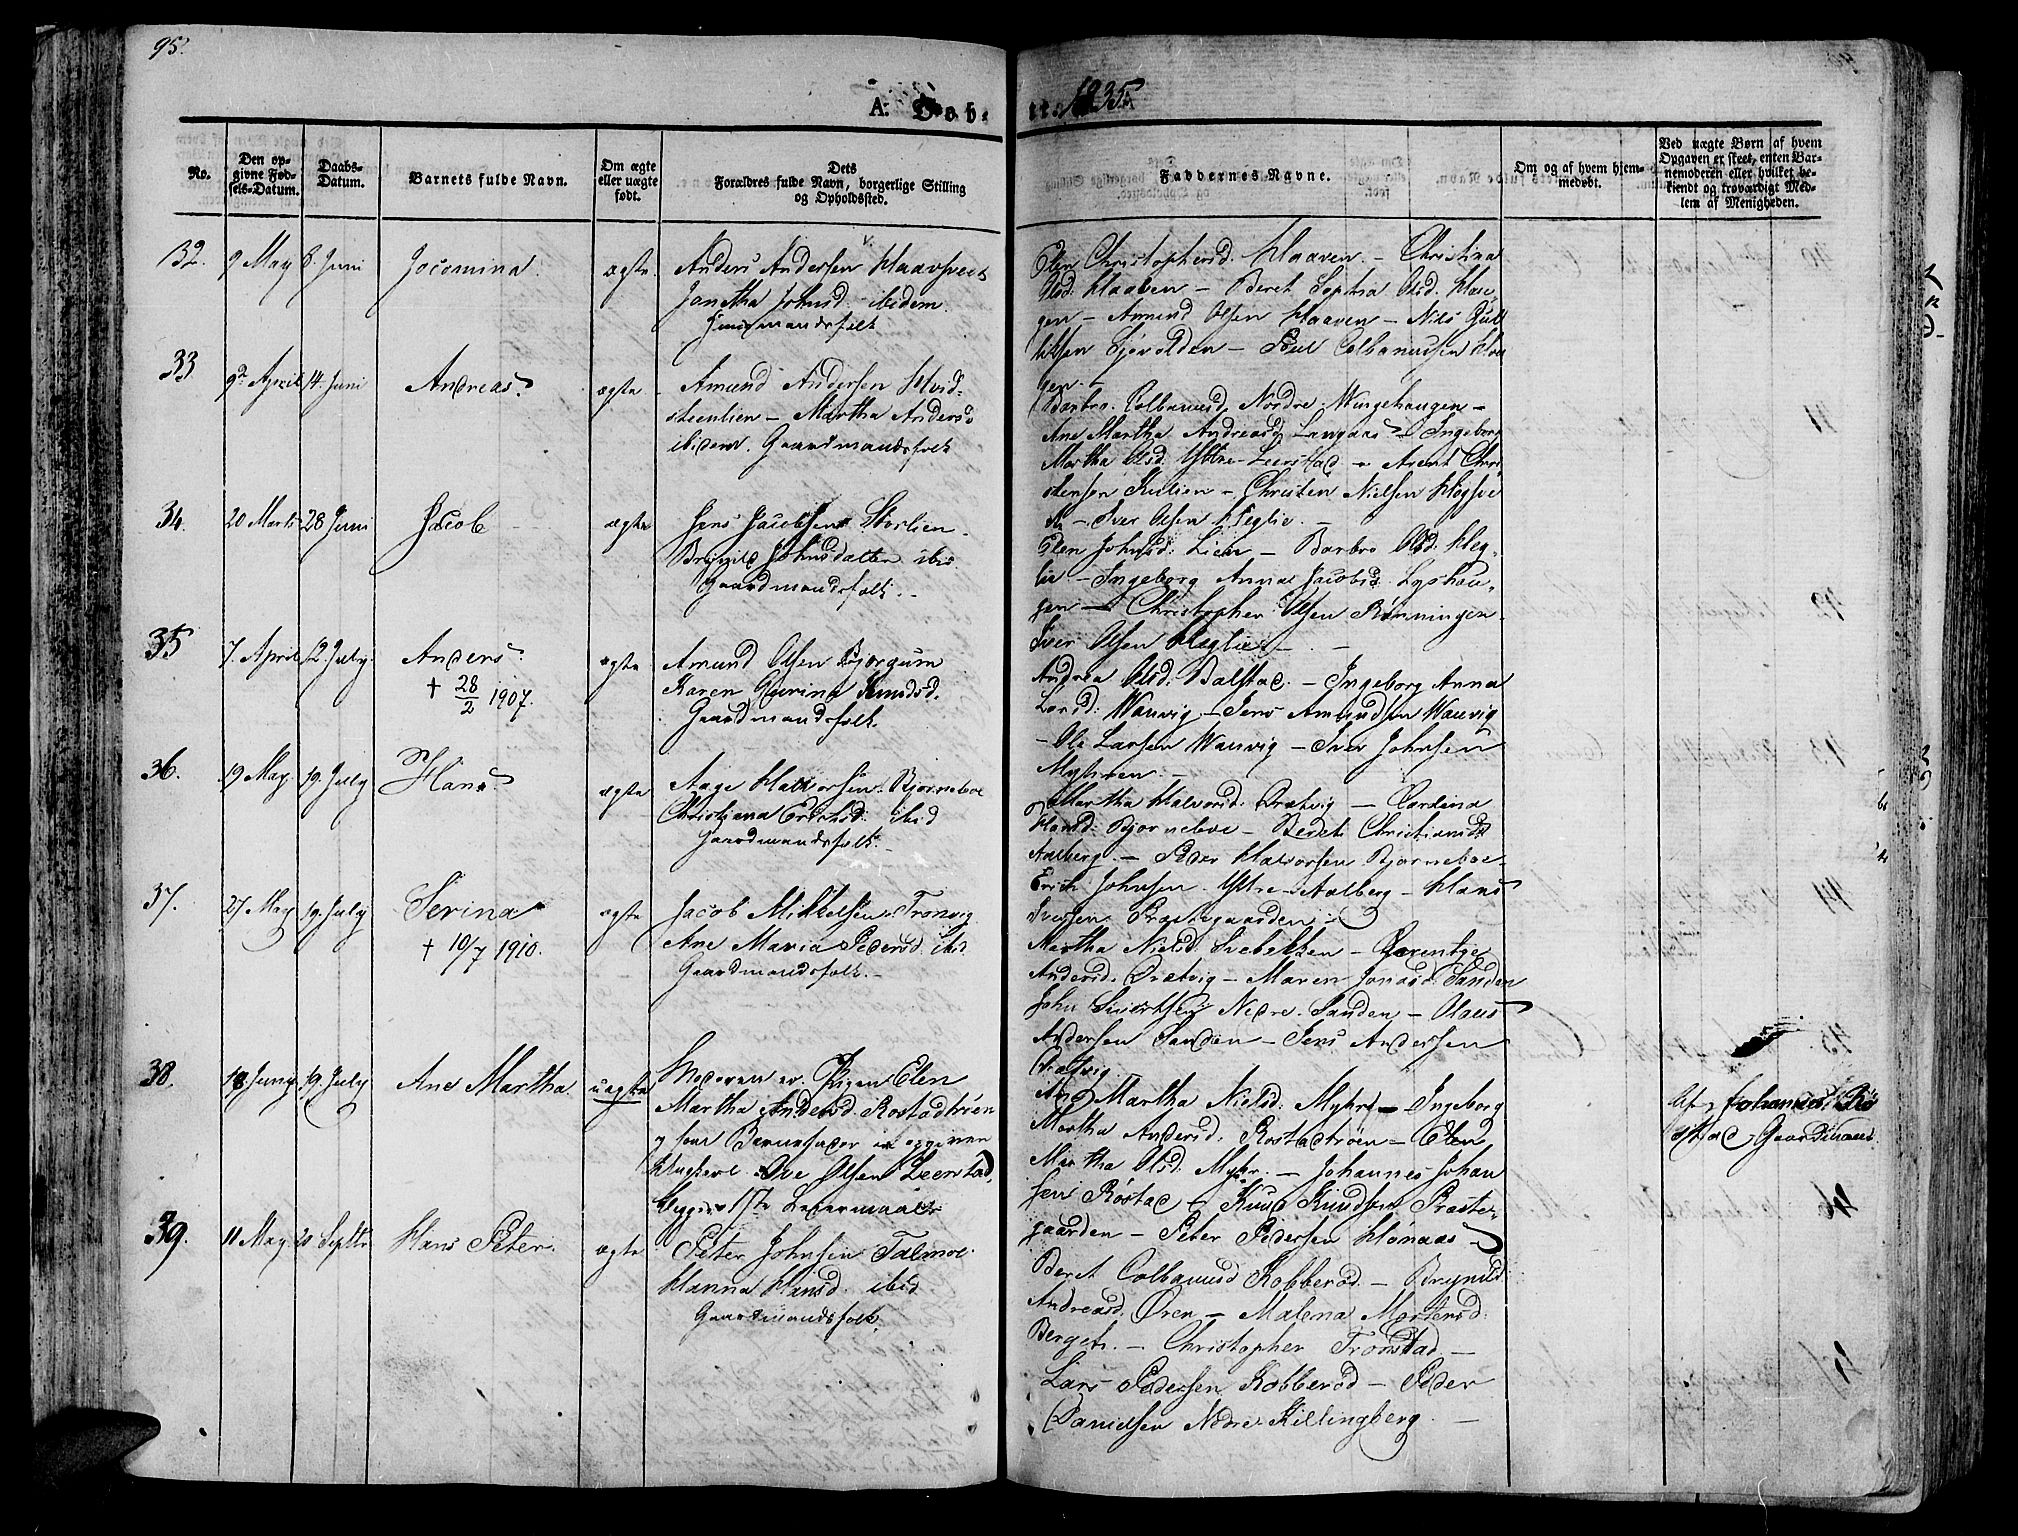 95.
A: Døb-
te. 1835
No.
Den op-
givne Fød-
sels-Datum.
Daabs-
Datum.
Barnets fulde Navn.
Om ægte
eller uægte
født.
Dets
Forældres fulde Navn, borgerlige Stilling
og Opholdssted.
Faddernes Navne.
Om og af hvem hjem-
medøbt.
Ved uægte Børn af hvem
Opgaven er skeet, enten Bar-
nemoderen eller hvilket be-
kiendt og troværdigt Med-
lem af Menigheden.
32. 9 May 8 Juni Jocomina. ægte
Anders Andersen
Janetha Johnsd. ibidem.
Huusmandsfolk
Elen Christophersd. Haaven - Christina
Olsd. Haaven - Beret Sophia Olsd. Hau-
gen - Amund Olsen Haaven - Nils Gul-
liksen - Poul Colbanussen Hau
gen. -
33. April 14. Juni Andreas. ægte
Amund Andersen Hvid-
steenlien - Martha Andersd.
ibidem. Gaardmandsfolk
Barbro Colbanusd. Nordre
Ane Martha Andreasd. Langaas - Ingeborg
Martha Olsd. Yttre Leerstad - Arent Chri
stensen - Christen Nielsen
- Iver Olsen Heglie. -
34. 20 Marts 28 Juni Jacob ægte
Jens Jacobsen Storlien -
Brynild Johnsdatter ibid.
Gaardmandsfolk. -
Elen Johnsd. Lien - Barbro Olsd. Heg-
lie - Ingeborg Anna Jacobsd. Lyshau-
gen - Christopher Olsen Rønningen -
Iver Olsen Heglie - -
35 7. April 12. July. Anders. ægte
† 28/2 1907.
Amund Olsen Bjørgum
Karen Gurina Knudsd.
Gaardmandsfolk.
Andrea Olsd. Balstad. - Ingeborg Anna
Larsd. Wauvig - Jens Amundsen Wauvig
- Ole Larsen Wauvig - Iver Johnsen
Myhren -
36. 19 May. 19. July Hans ægte
Aage Halvorsen Bjørneboe
Christiana Erichsd. ibid
Gaardmandsfolk. -
Martha Halvorsd. Drætvig - Cardina
Hansd. Bjørneboe - Beret Christiansd.
Aalberg. - Peder Halvorsen Bjørneboe -
Erich Johnsen Yttre-Aalberg - Hans
Iversen Præstegaarden -
37. 27 May 19. July Serina ægte
† 10/7 1910.
Jacob Mikkelsen Tronvig
Ane Maria Pedersd. ibid
Gaardmandsfolk. -
Martha Nielsd. Svebekken -
Andersd. Drætvig - Maren Jonasd. Sanden
John Sivertsen Nedre Sanden - Claus
Andersen Sanden - Jens Andersen
Drætvig.
38. 18. Juny 19. July Ane Martha uægte
Moderen er Pigen Elen
Martha Andersd. Rostadtrøen
og som Barnefader er opgiven
Ungkarl Ove Olsen Leerstad,
begges 1ste Leiermaal
Ane Martha Nielsd. Myhre - Ingeborg
Martha Andersd. Rostadtrøen - Elen
Martha Olsd. Myhr. - Johannes Johan
sen Røstad - Knud Knudsen Præste-
gaarden - Peter Pedersen Hønaas -
Af Johannes Rø
stad Gaardmand
39. 11 May 20 Septbr. Hans Peter. ægte
Peter Johnsen Talmoe.
Hanna Hansd. ibid
Gaardmandsfolk.
Beret Colbanusd Kobberød. - Brynild
Andreasd. Øren - Malena Mortensd.
Berget. - Christopher Tronstad. -
Lars Pedersen Kobberød - Peder
Danielsen Nedre Killingberg. -